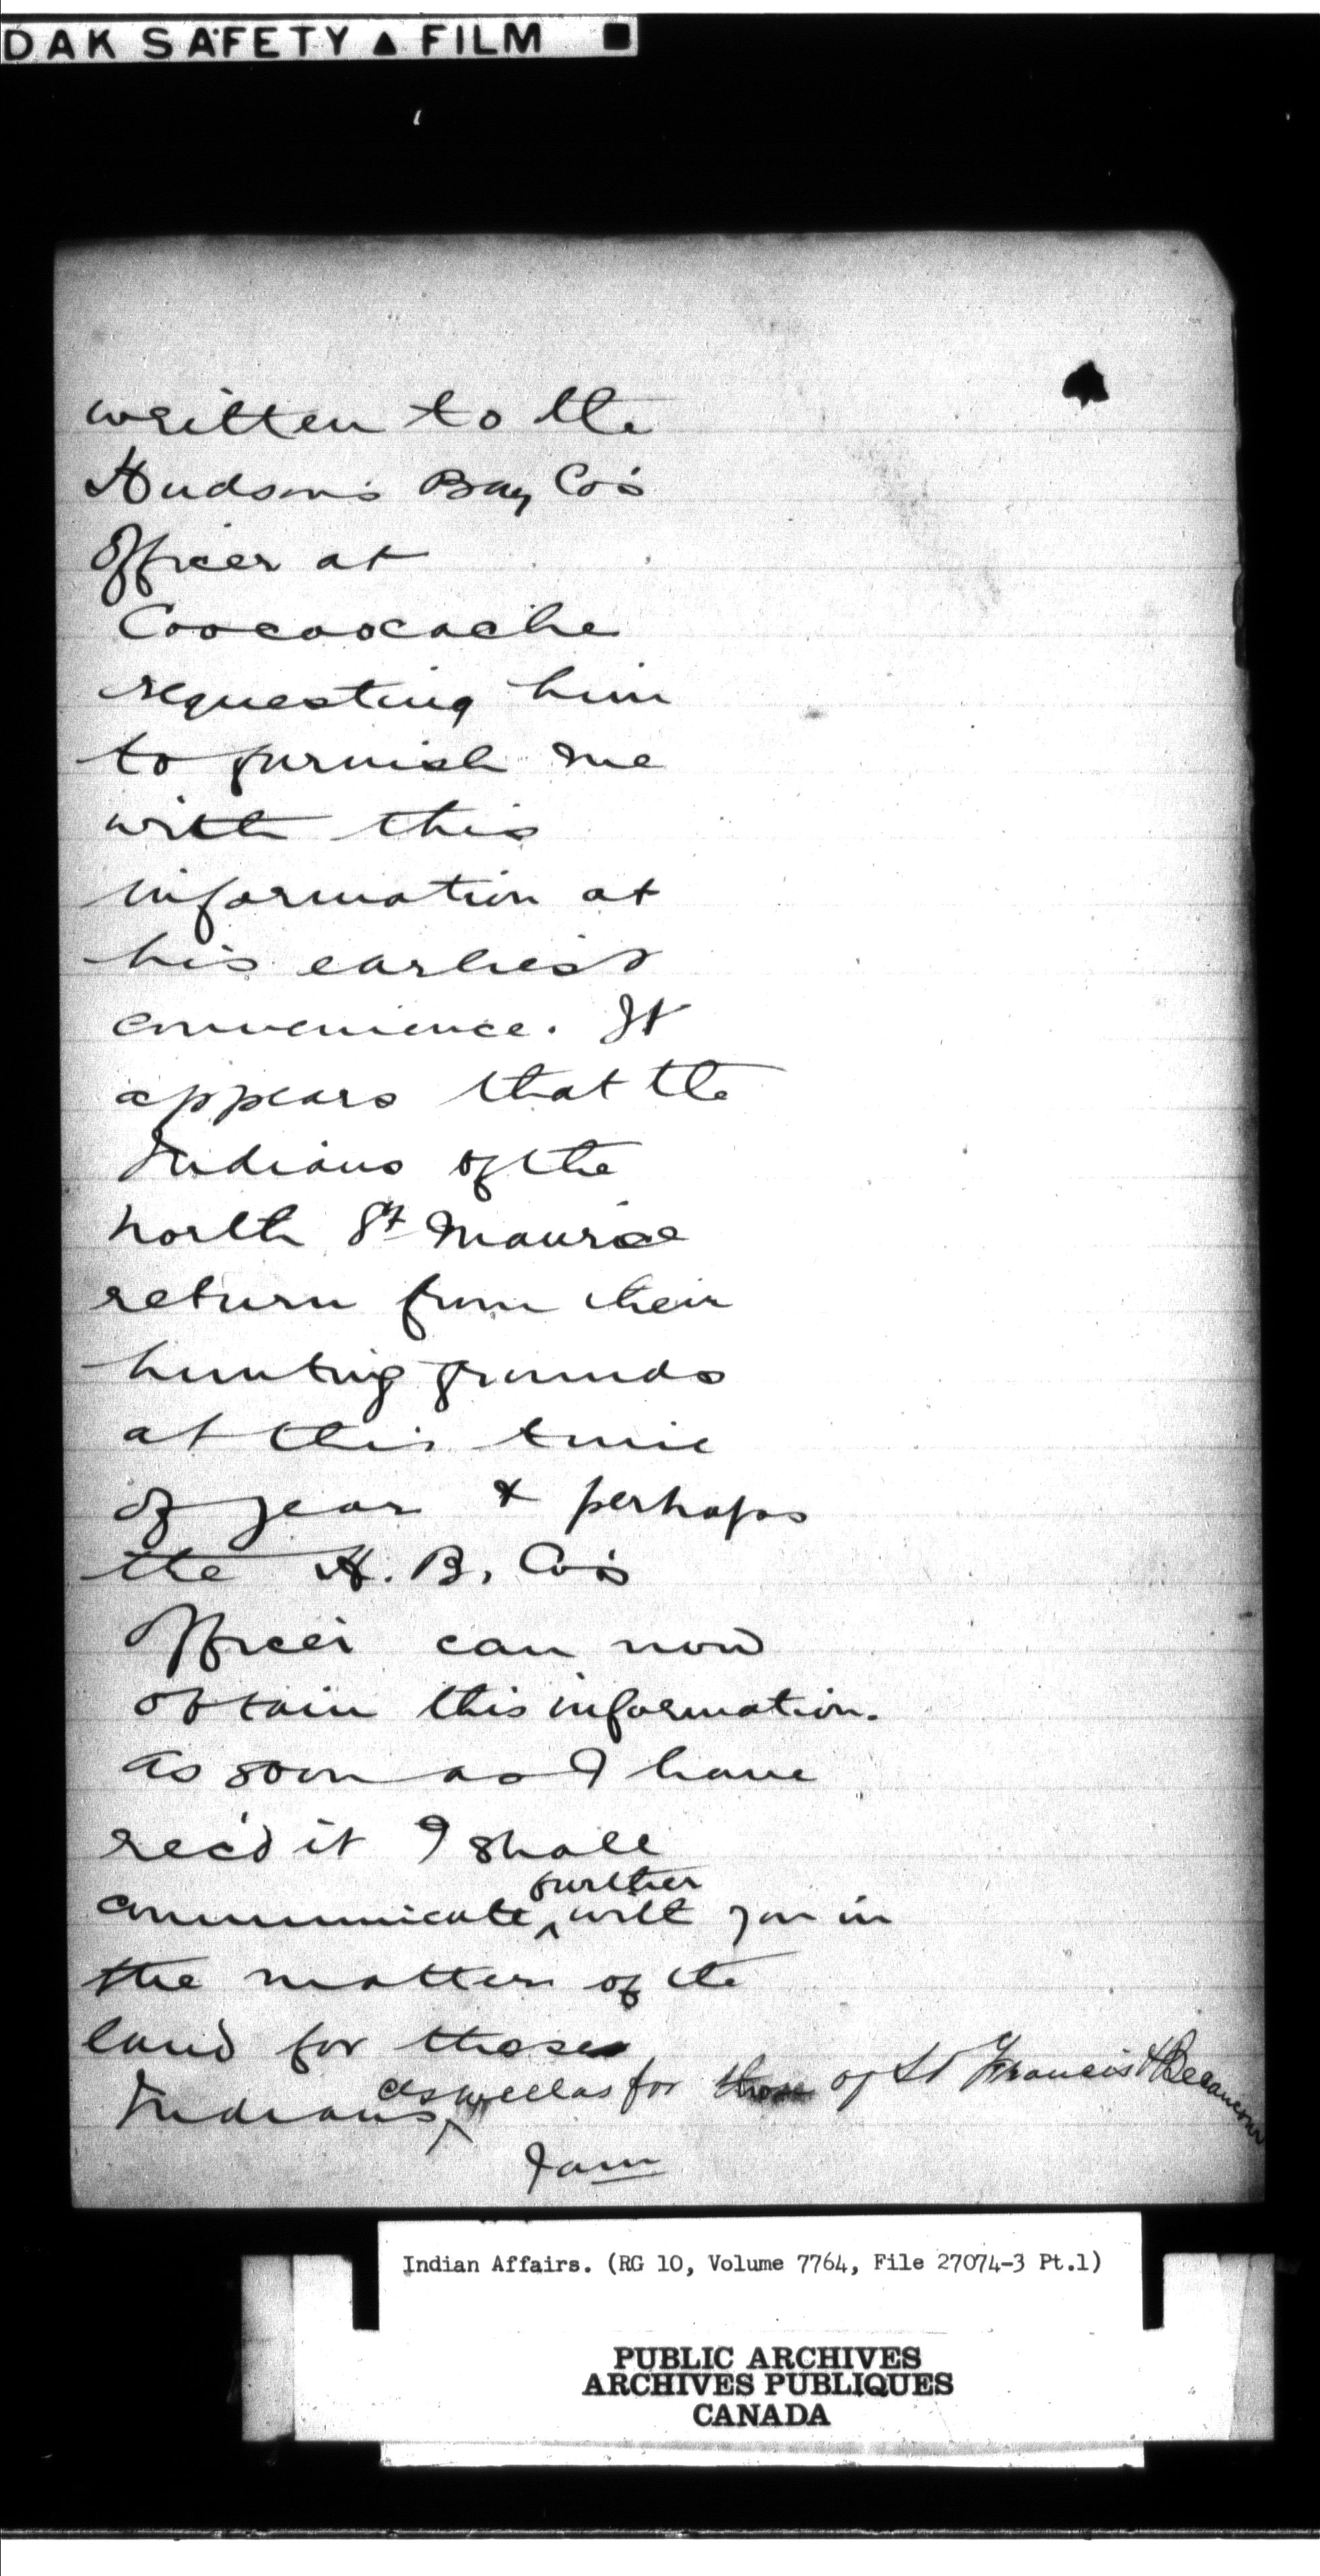 DAK SAFETY ▲ FILM ■
written to the
Hudson's Bay Co's
Officer at
Coocoocache
requesting him
to furnish me
with this
information at
his earliest
convenience. It
appears that the
Indians of the
north St Maurice
return from their
hunting grounds
at this time
of year & perhaps
the H. B. Co's
Officer can now
obtain this information.
As soon as I have
rec'd it I shall
communicate ^further with you in
the matter of the
land for those
Indians ^as well as for those of St Francis & Becancour
I am
Indian Affairs. (RG 10, Volume 7764, File 27074-3 Pt.1)
PUBLIC ARCHIVES
ARCHIVES PUBLIQUES
CANADA